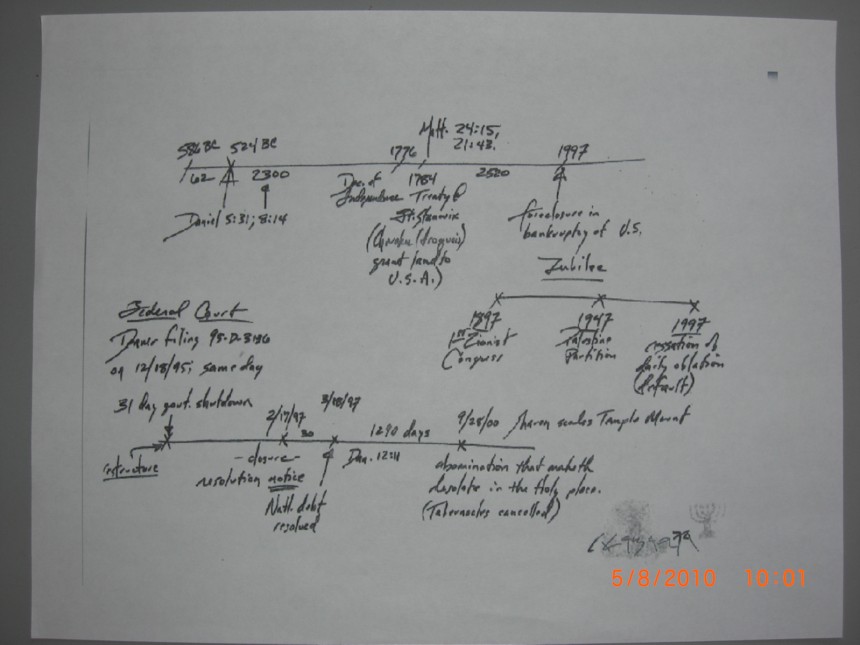 Matt. 24:15,
21:43.
586 BC 524 BC 1776 1997
62 2300 1784 2520
Daniel 5:31; 8:14
Dec. of
Independence
Treaty of
Ft. Stanwix
(Iroquois)
grant land to
U.S.A.)
foreclosure in
bankruptcy of U.S.
Jubilee
1897 1947 1997
1st Zionist
Congress
Palestine
Partition
cessation of
daily oblation
(default)
Federal Court
filing 95-D-3196
on 12/18/95; same day
31 day govt. shutdown
restructure
2/17/97 3/18/97 9/28/00 Sharon scales Temple Mount
30 1290 days
- closure -
resolution notice
Dan. 12:11
Natl. debt
resolved
abomination that maketh
desolate in the Holy place.
(Tabernacles cancelled)
5/8/2010 10:01